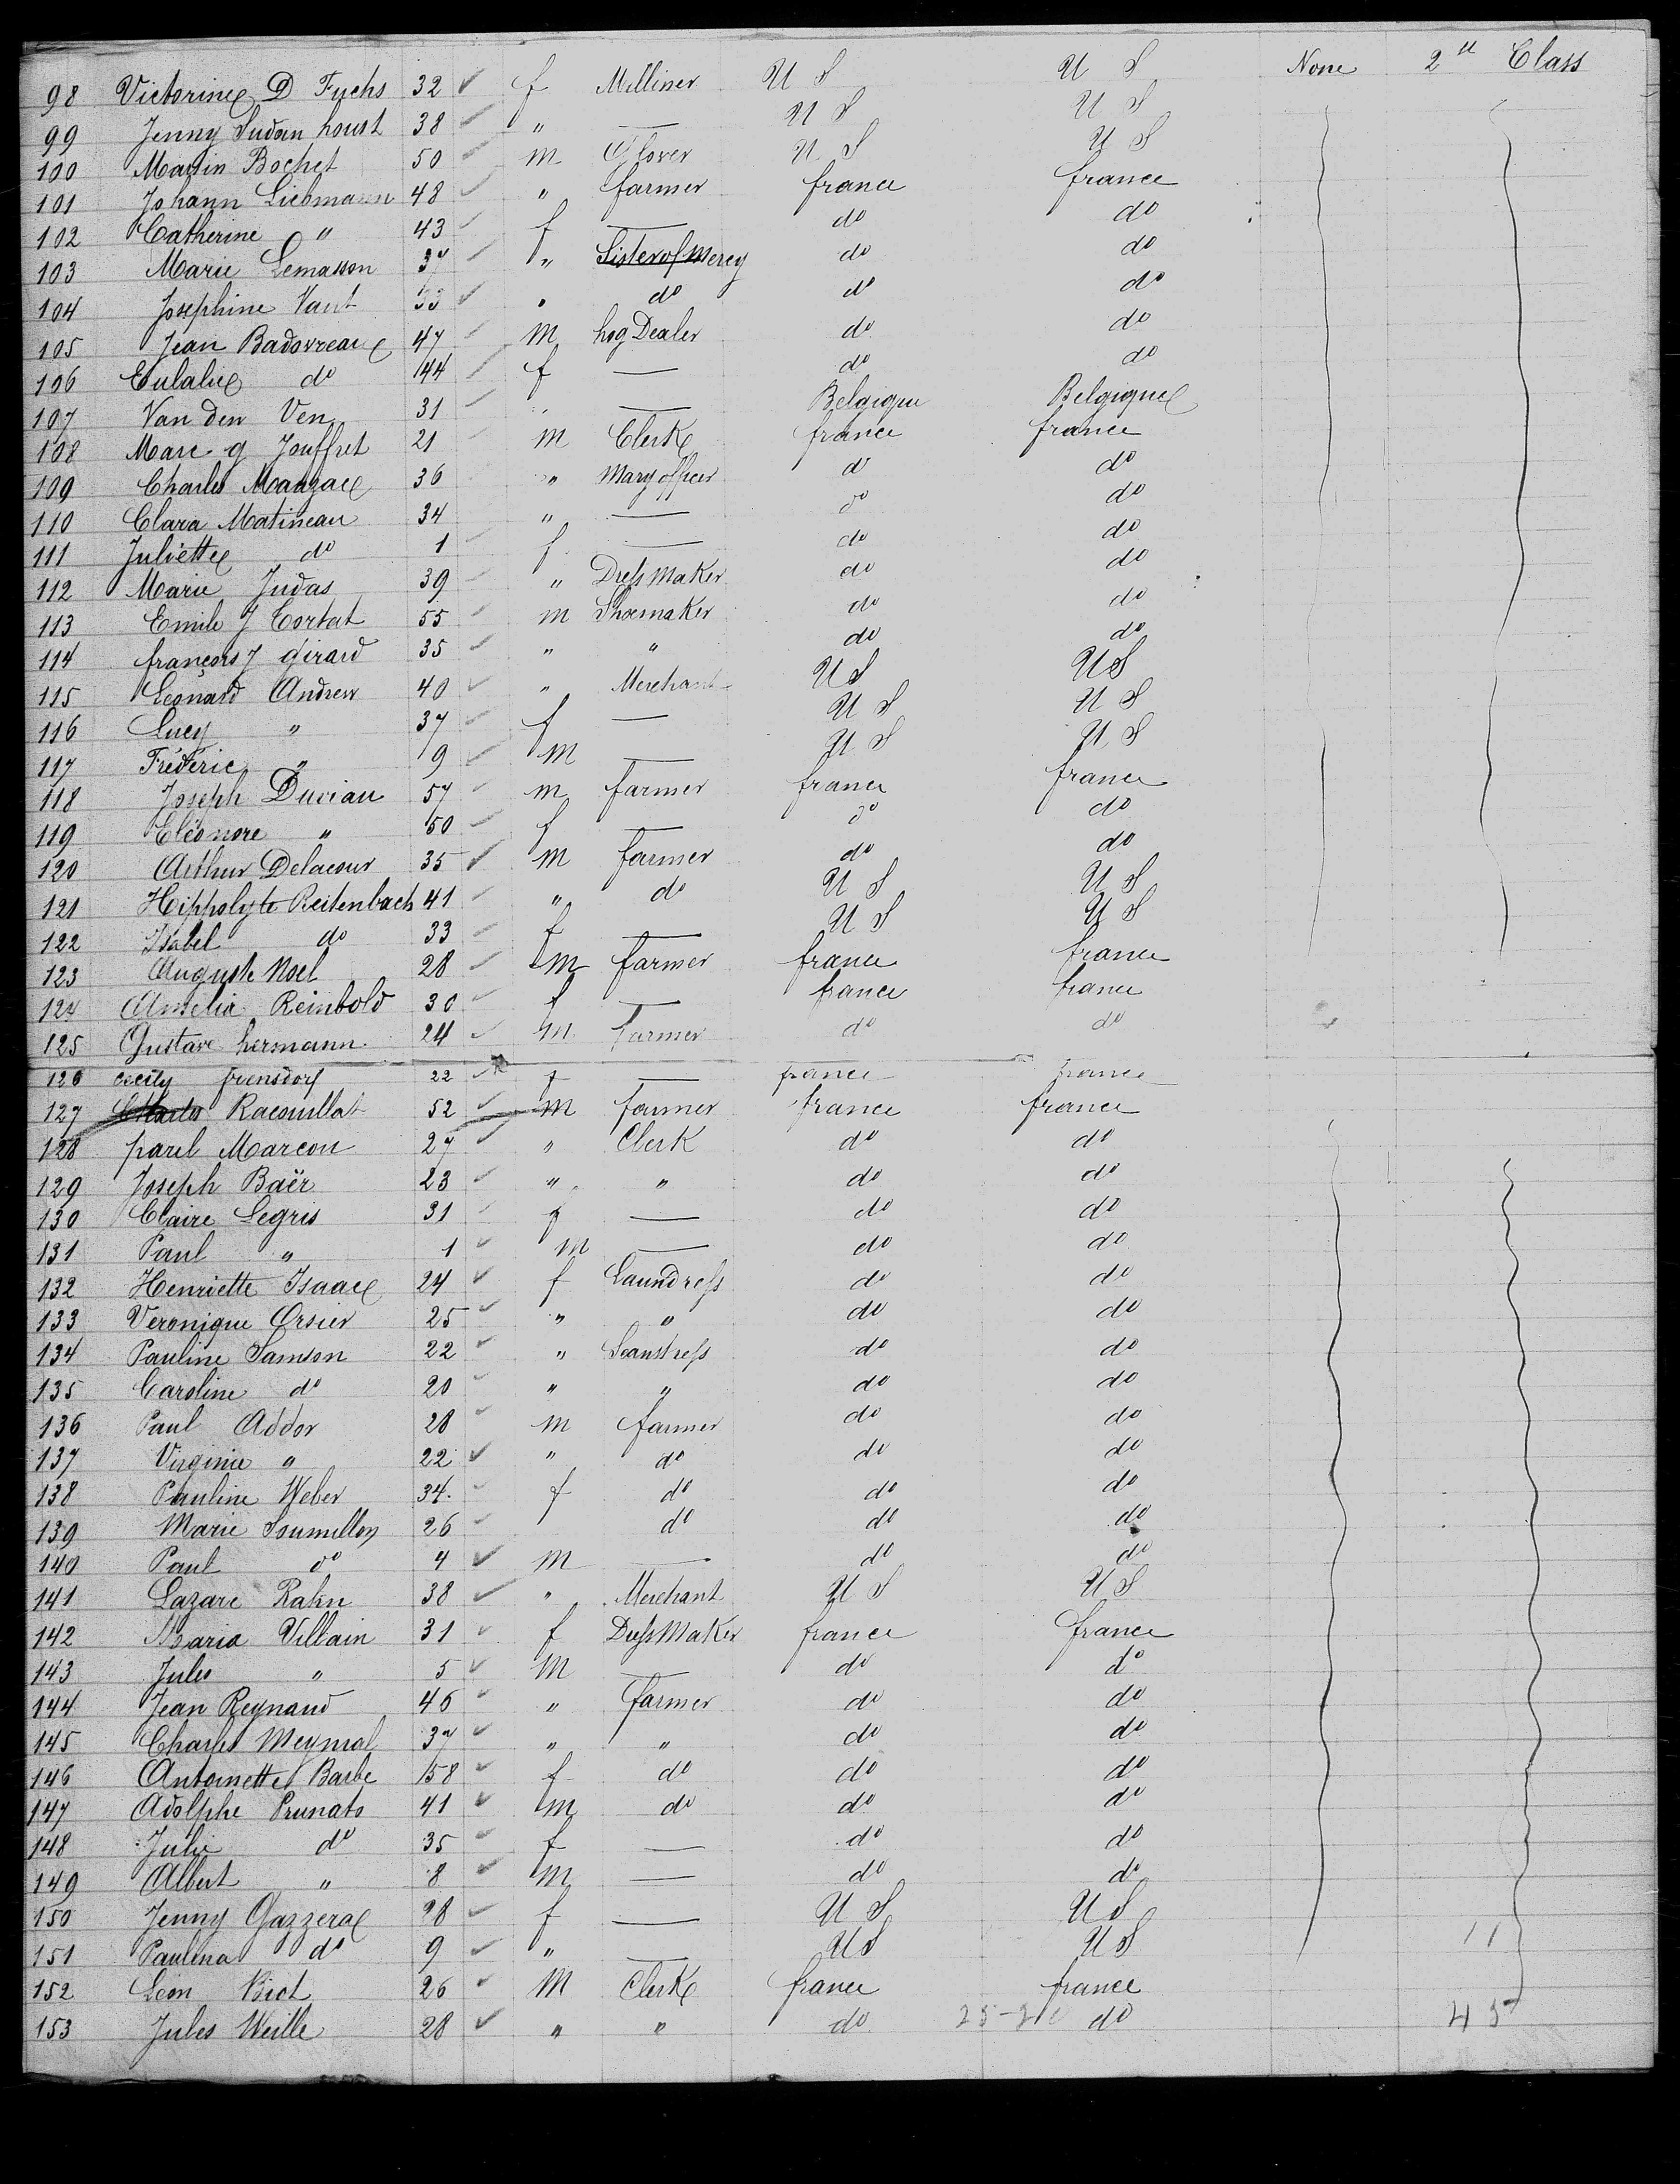 98 Victorine D Fuchs 32 f Milliner U S U S None 2d Class
99 Jenny Sudan houst 38 " — U S U S
100 Martin Bochet 50 m Glover U S U S
101 Johann Liebmann 48 " farmer france france
102 Catherine " 43 f — do do
103 Marie Lemasson 37 " Sister of Mercy do do
104 Josephine Vant 33 " do do do
105 Jean Badovreau 47 m hog Dealer do do
106 Eulalie do 44 f — do do
107 Van den Ven 31 " — Belgique Belgique
108 Marc g Jouffret 21 m Clerk france france
109 Charles Mauzac 36 " Mary officer do do
110 Clara Matineau 34 " — do do
111 Juliette do 1 f — do do
112 Marie Judas 39 " Dress Maker do do
113 Emile J Cortat 55 m Shoemaker do do
114 françois J girard 35 " " do do
115 Leonard Andrew 40 " Merchant U S U S
116 Lucy " 37 f — U S U S
117 Fréderic " 9 m — U S U S
118 Joseph Ducian 57 m farmer france france
119 Cléonore " 50 f — do do
120 Arthur Delacour 35 m farmer do do
121 Hippolyte Reitenbach 41 " do U S U S
122 Isabel do 33 f — U S U S
123 Auguste Noel 28 m farmer france france
124 Amelia Reinbold 30 f — france france
125 Gustave hermann 24 m farmer do do
126 cecily frensdorf 22 f — france france
127 Racouillat 52 m farmer france france
128 parel Marcou 27 " Clerk do do
129 Joseph Baër 23 " " do do
130 Claire Legris 31 f — do do
131 Paul " 1 m — do do
132 Henriette Isaac 24 f Laundress do do
133 Veronique Orsier 25 " " do do
134 Pauline Samson 22 " Seamstress do do
135 Caroline do 20 " " do do
136 Paul Addor 28 m farmer do do
137 Virginie " 22 " do do do
138 Pauline Weber 34 f do do do
139 Marie Soumillon 26 do do do
140 Paul do 4 m — do do
141 Lazare Kahn 38 " Merchant U S U S
142 Maria Villain 31 f Dress Maker france france
143 Jules " 5 m — do do
144 Jean Reynaud 46 " farmer do do
145 Charles Meynial 37 " " do do
146 Antoinette Barbe 58 f do do do
147 Adolphe Prunats 41 m do do do
148 Julie do 35 f — do do
149 Albert " 8 m — do do
150 Jenny Gazzera 28 f — U S U S
151 Paulina do 9 " — U S U S 11
152 Léon Biot 26 m Clerk france france
153 Jules Weille 28 " " do do 45